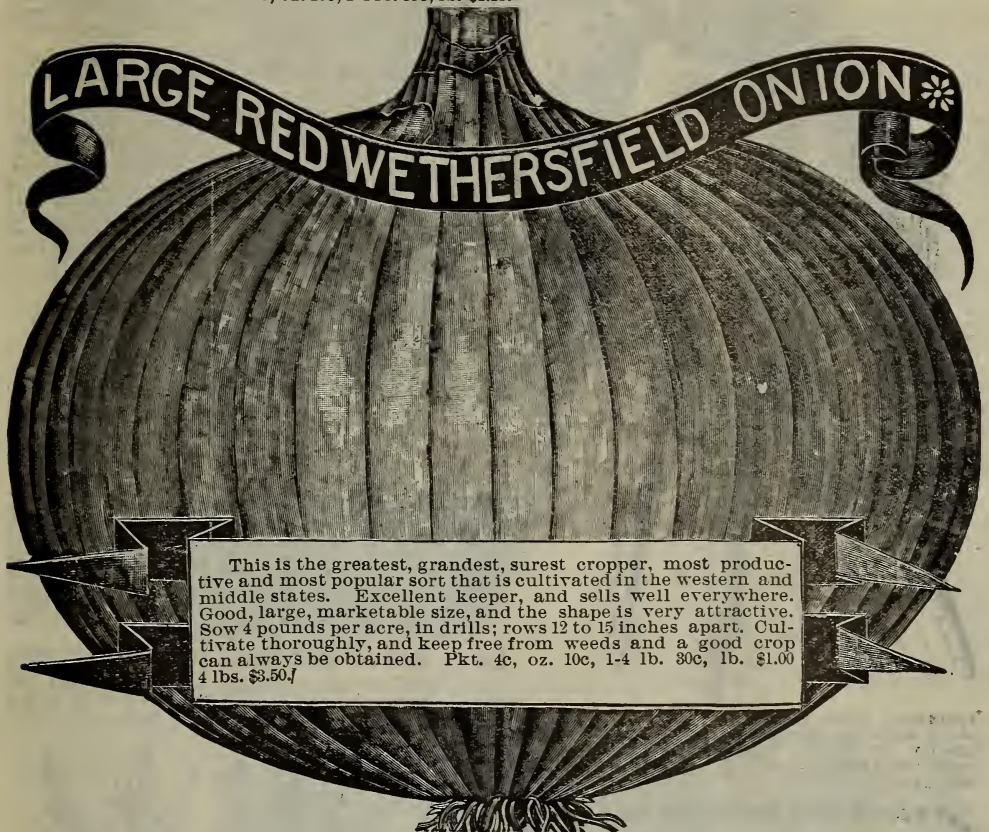 LARGE RED WETHERSFIELD ONION
This is the greatest, grandest, surest cropper, most produc-
tive and most popular sort that is cultivated in the western and
middle states. Excellent keeper, and sells well everywhere.
Good, large, marketable size, and the shape is very attractive.
Sow 4 pounds per acre, in drills; rows 12 to 15 inches apart. Cul-
tivate thoroughly, and keep free from weeds and a good crop
can always be obtained. Pkt. 4c, oz. 10c, 1-4 lb. 30c, lb. $1.00
4 lbs. $3.50.